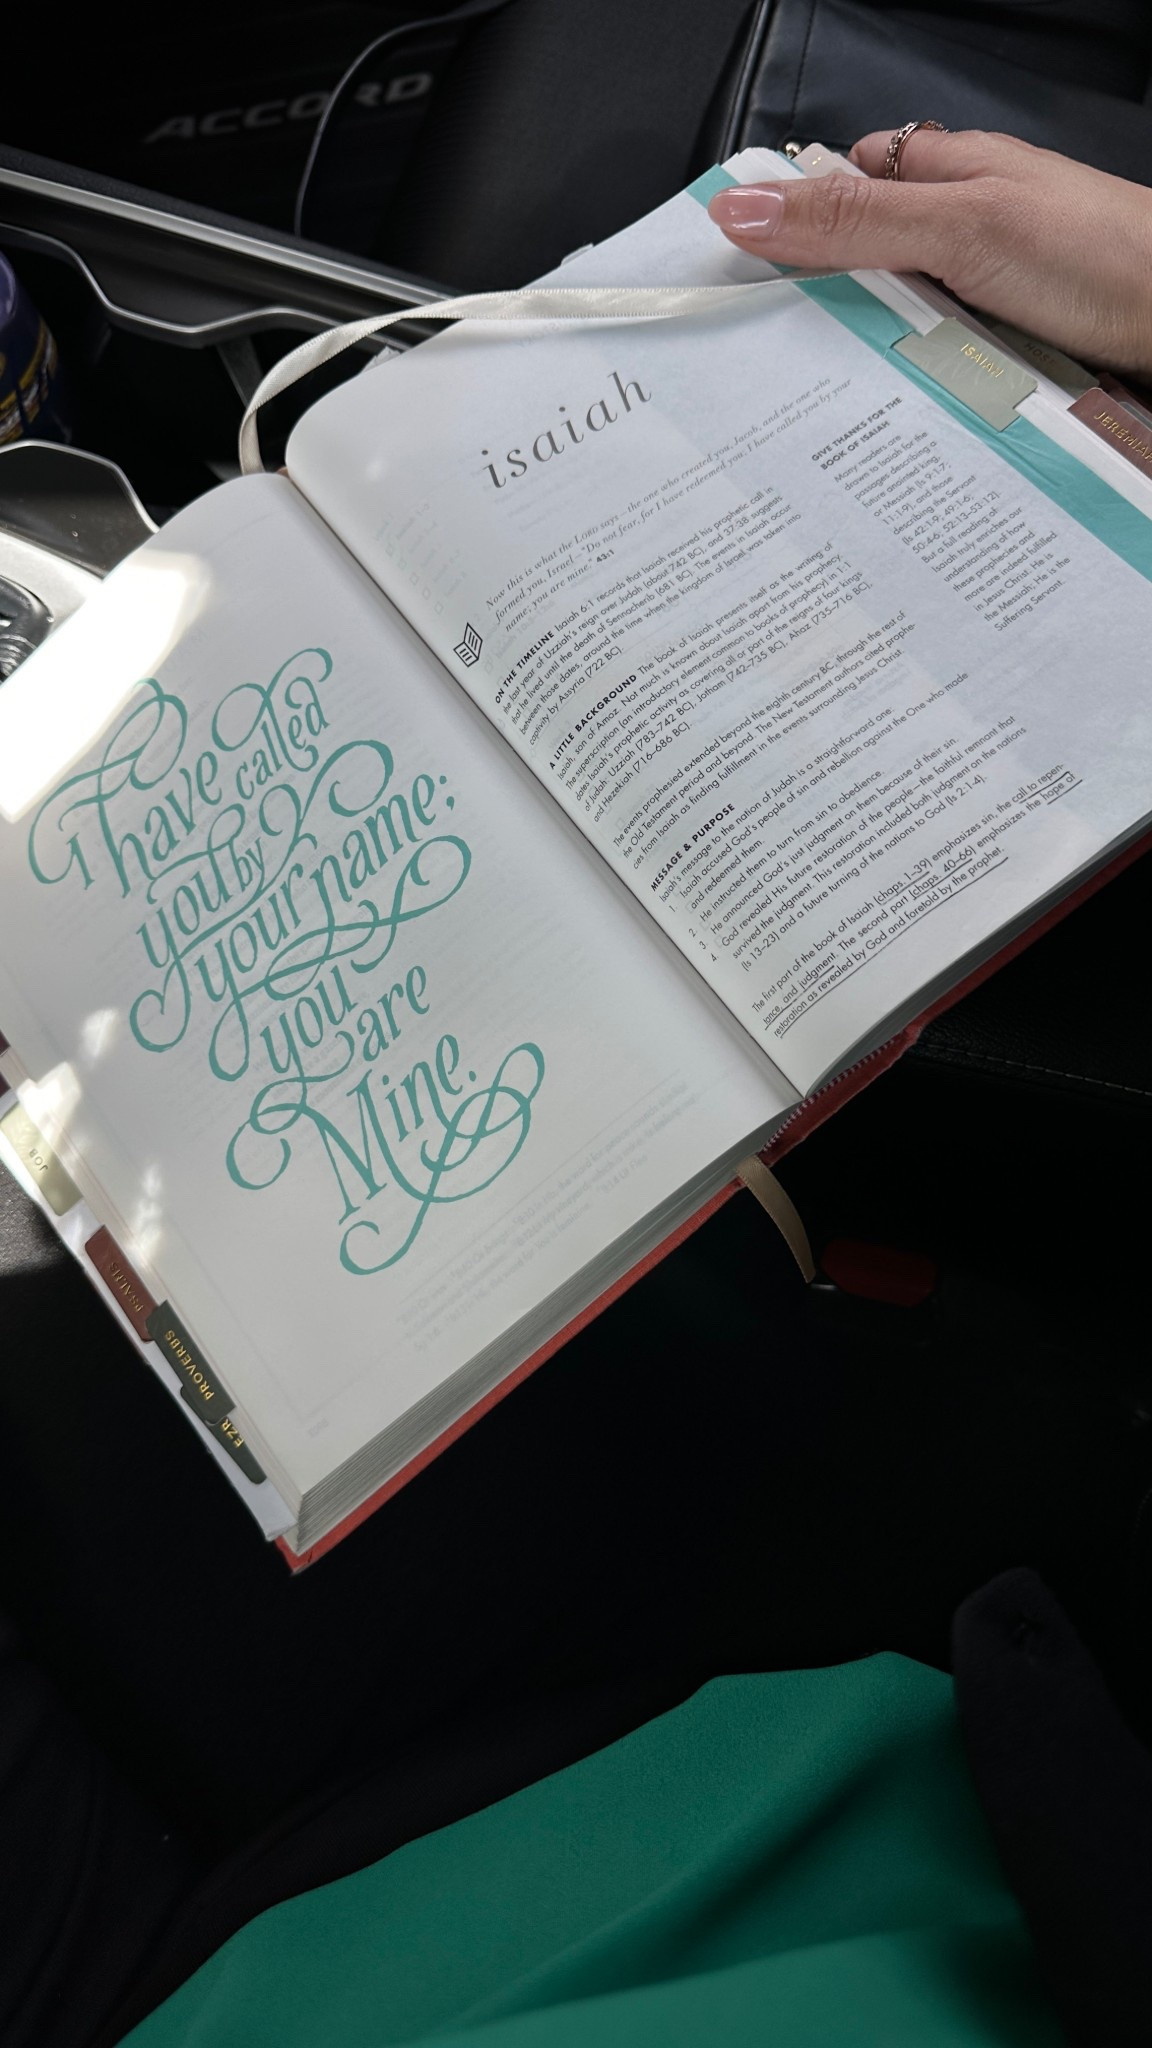 ACCORD
I have called
you by
your name;
you are
Mine.
JOB
PSALMS
PROVERBS
EZR
isaiah
Now this is what the LORD says—the one who created you, Jacob, and the one who
formed you, Israel—"Do not fear, for I have redeemed you; I have called you by your
name; you are mine." 43:1
ON THE TIMELINE Isaiah 6:1 records that Isaiah received his prophetic call in
the last year of Uzziah's reign over Judah (about 742 BC), and 37:38 suggests
that he lived until the death of Sennacherib (681 BC). The events in Isaiah occur
between those dates, around the time when the kingdom of Israel was taken into
captivity by Assyria (722 BC).
A LITTLE BACKGROUND The book of Isaiah presents itself as the writing of
Isaiah, son of Amoz. Not much is known about Isaiah apart from his prophecy.
The superscription (an introductory element common to books of prophecy) in 1:1
dates Isaiah's prophetic activity as covering all or part of the reigns of four kings
of Judah: Uzziah (783–742 BC), Jotham (742–735 BC), Ahaz (735–716 BC),
and Hezekiah (716–686 BC).
The events prophesied extended beyond the eighth century BC, through the rest of
the Old Testament period and beyond. The New Testament authors cited prophe-
cies from Isaiah as finding fulfillment in the events surrounding Jesus Christ.
MESSAGE & PURPOSE
Isaiah's message to the nation of Judah is a straightforward one:
1. Isaiah accused God's people of sin and rebellion against the One who made
and redeemed them.
2. He instructed them to turn from sin to obedience.
3. He announced God's just judgment on them because of their sin.
4. God revealed His future restoration of the people—the faithful remnant that
survived the judgment. This restoration included both judgment on the nations
(Is 13–23) and a future turning of the nations to God (Is 2:1-4).
The first part of the book of Isaiah (chaps. 1–39) emphasizes sin, the call to repen-
tance, and judgment. The second part (chaps. 40–66) emphasizes the hope of
restoration as revealed by God and foretold by the prophet.
GIVE THANKS FOR THE
BOOK OF ISAIAH
Many readers are
drawn to Isaiah for the
passages describing a
future anointed king,
or Messiah (Is 9:1-7;
11:1-9), and those
describing the Servant
(Is 42:1-9; 49:1-6;
50:4-6; 52:13–53:12).
But a full reading of
Isaiah truly enriches our
understanding of how
these prophecies and
more are indeed fulfilled
in Jesus Christ. He is
the Messiah; He is the
Suffering Servant.
ISAIAH
HOSE
JEREMIAH